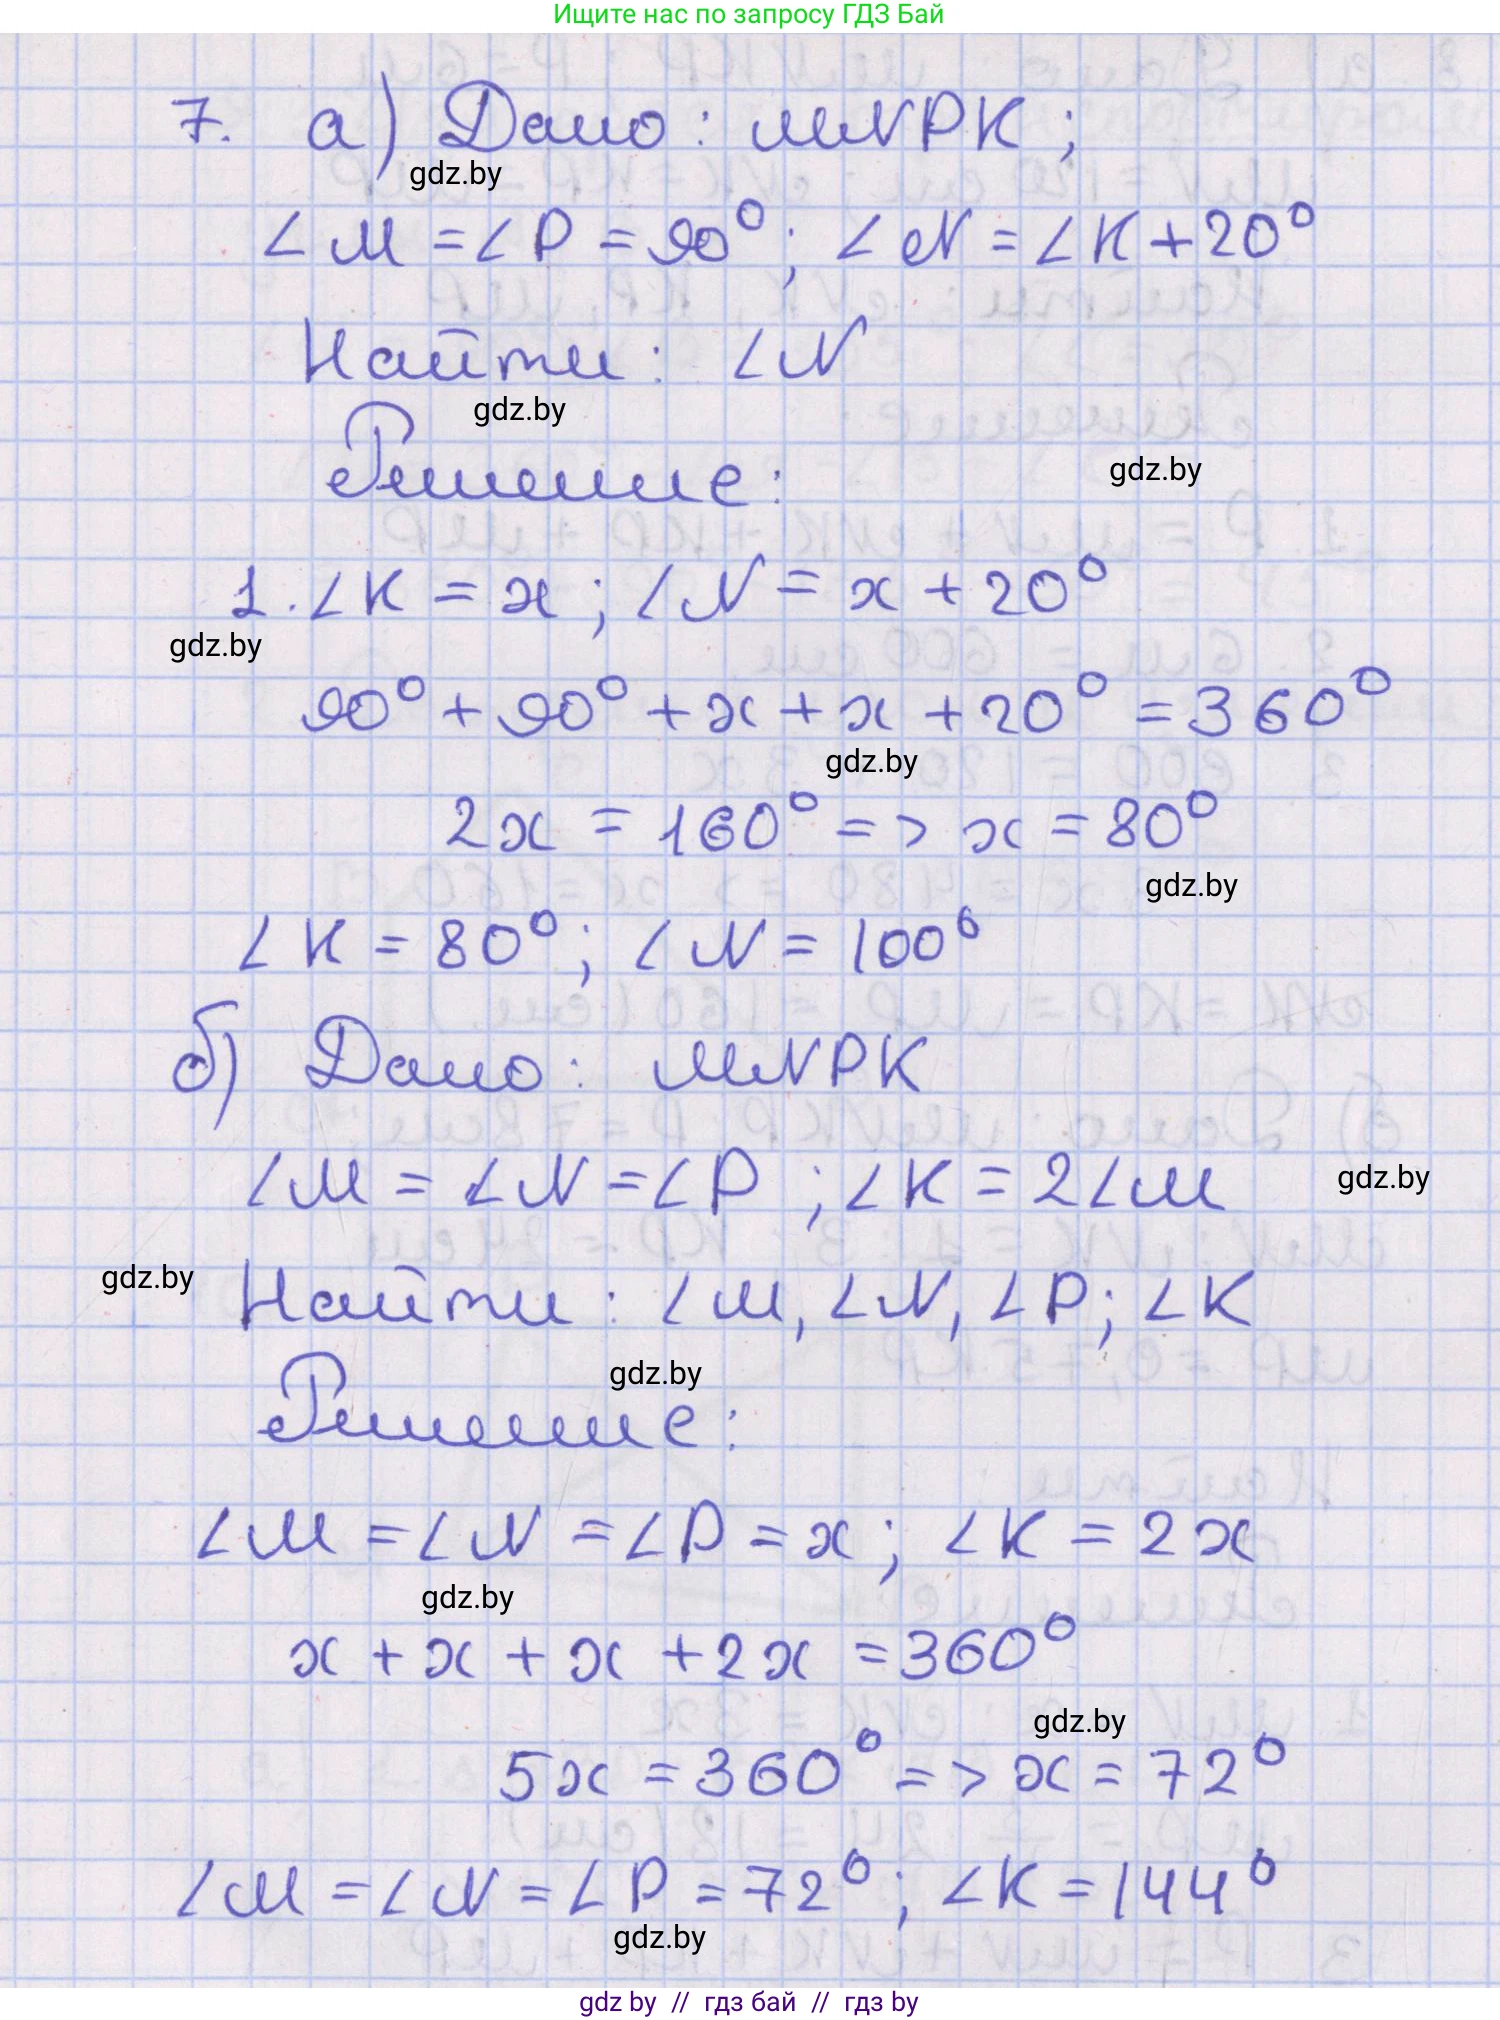 Ищите нас по запросу ГДЗ Бай
7. а) Дано: MNPK;
gdz.by
∠M = ∠P = 90°; ∠N = ∠K + 20°
Найти: ∠N
gdz.by
Решение:
gdz.by
1. ∠K = x; ∠N = x + 20°
gdz.by
90° + 90° + x + x + 20° = 360°
gdz.by
2x = 160° => x = 80°
gdz.by
∠K = 80°; ∠N = 100°
б) Дано: MNPK
∠M = ∠N = ∠P; ∠K = 2∠M
gdz.by
gdz.by
Найти: ∠M, ∠N, ∠P; ∠K
gdz.by
Решение:
∠M = ∠N = ∠P = x; ∠K = 2x
gdz.by
x + x + x + 2x = 360°
gdz.by
5x = 360° => x = 72°
∠M = ∠N = ∠P = 72°; ∠K = 144°
gdz.by
gdz by // гдз бай // гдз by